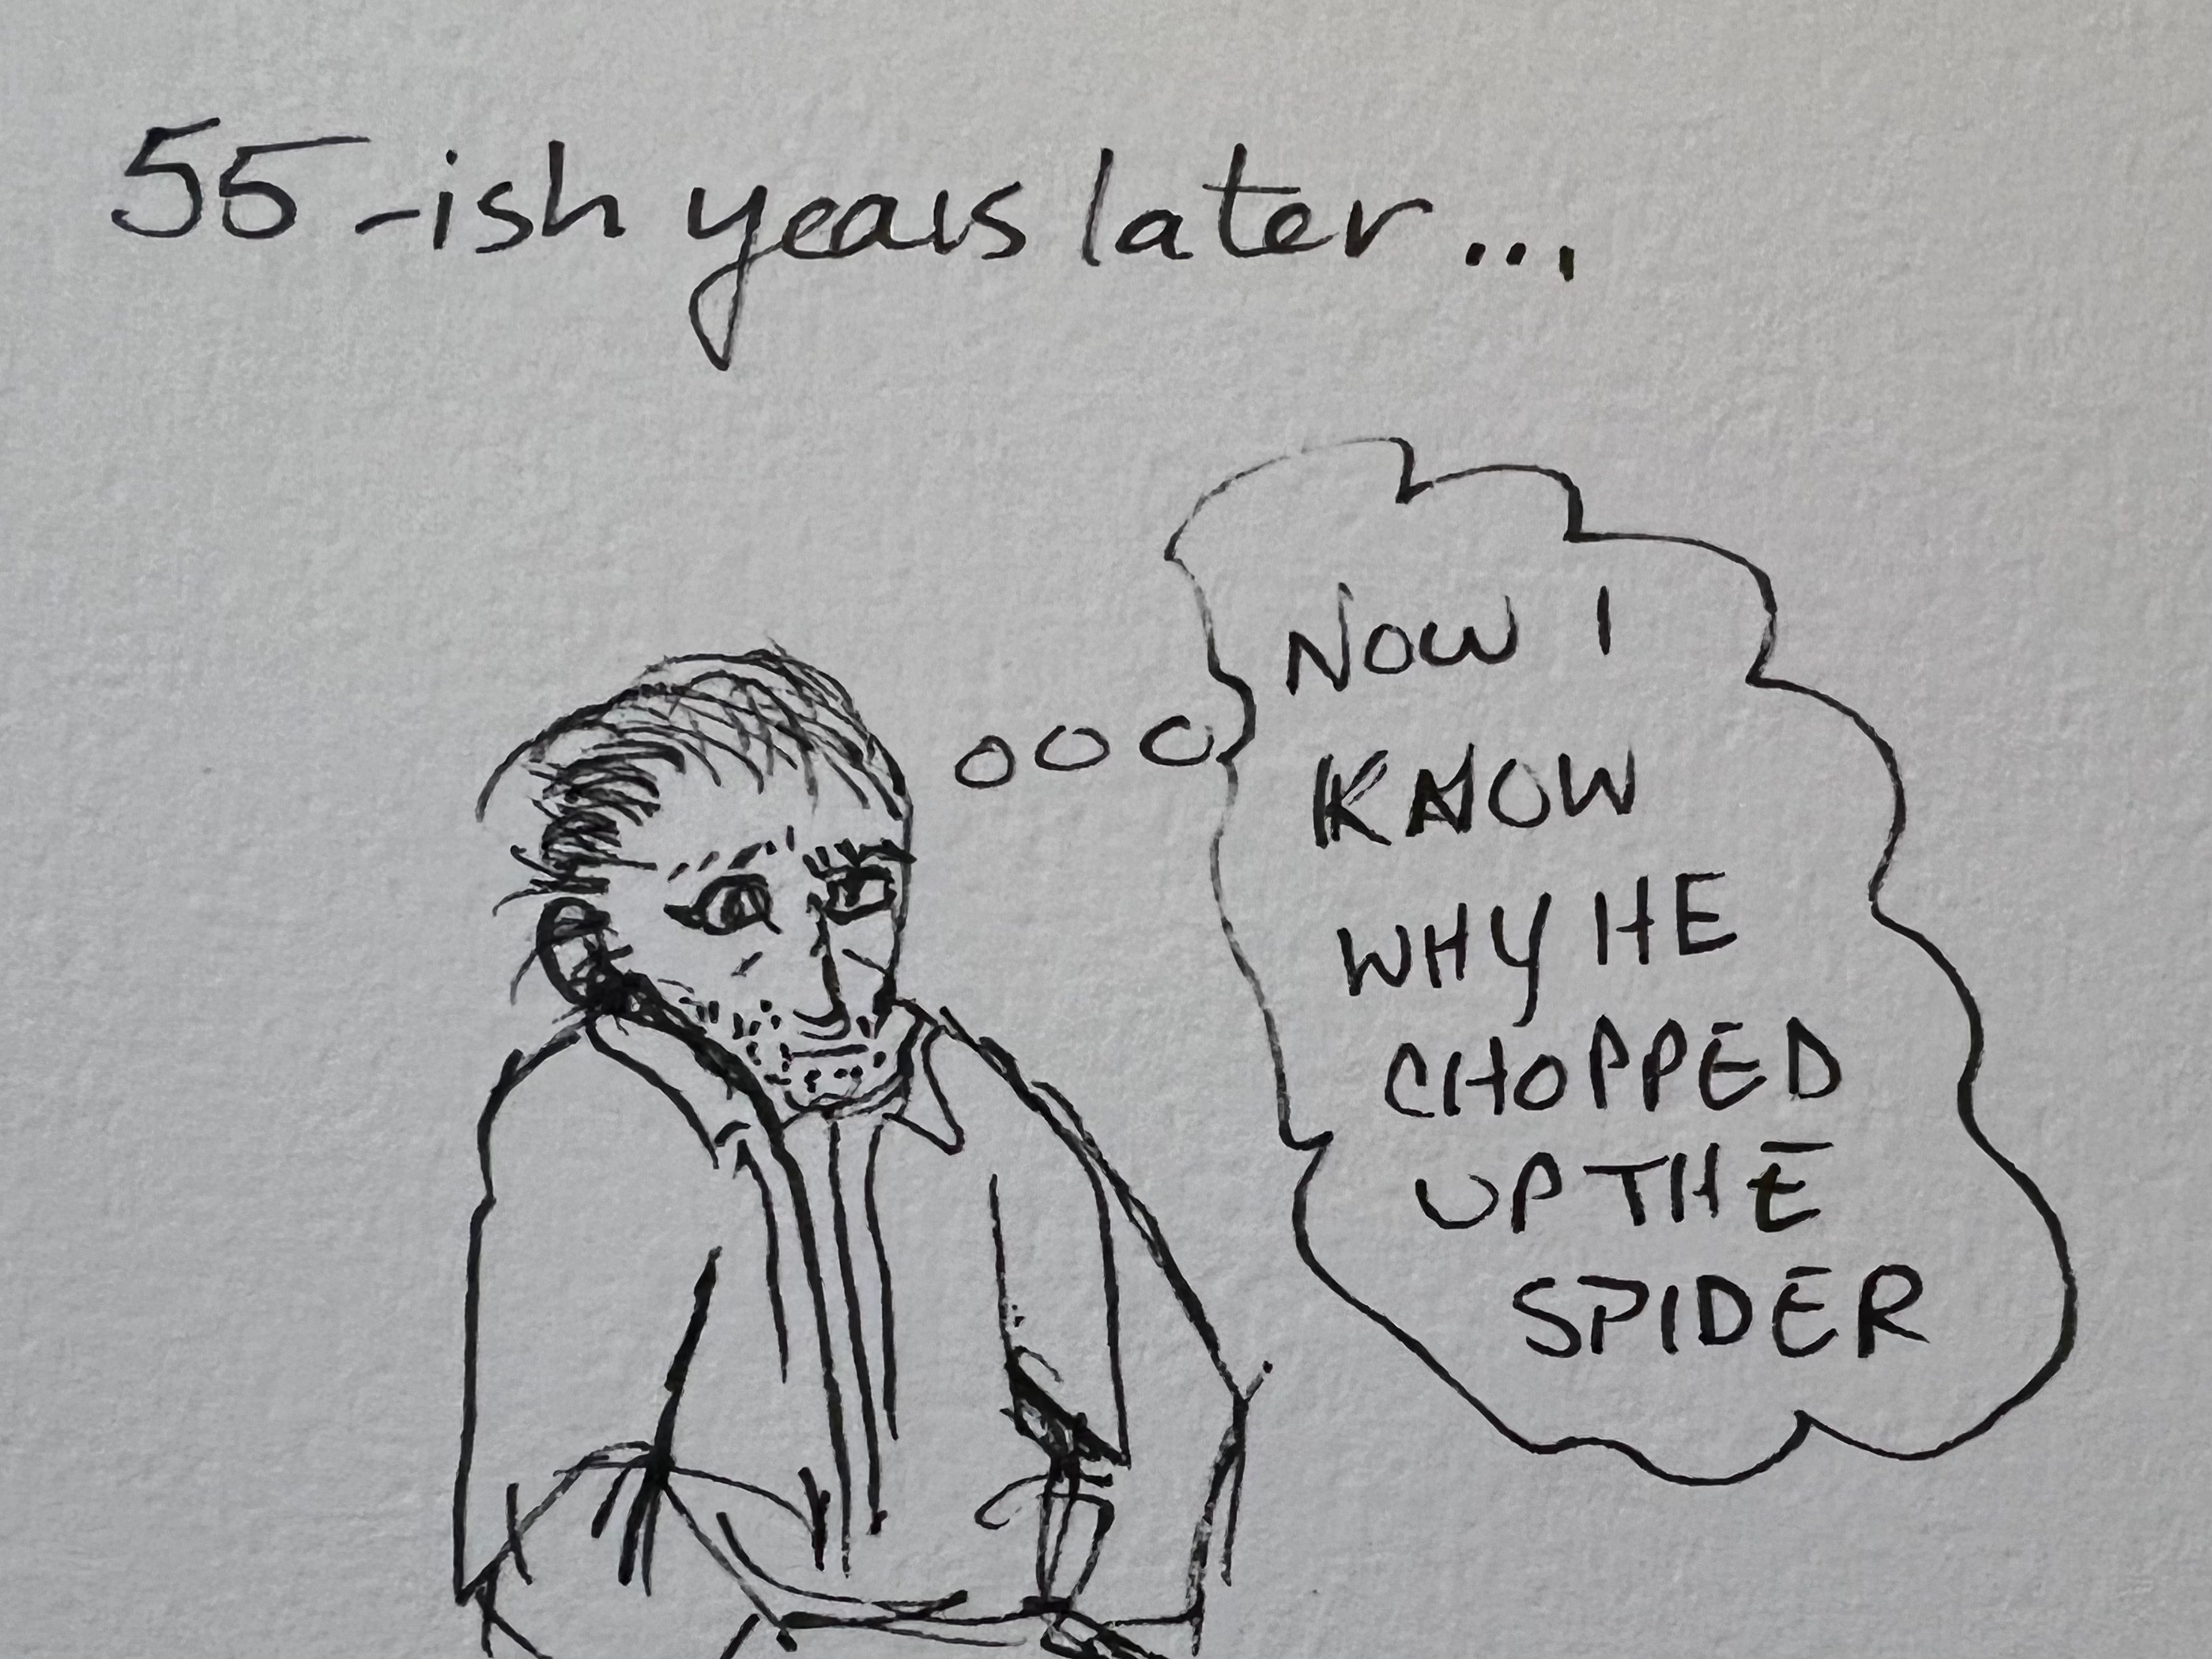 55-ish years later...
NOW I
KNOW
WHY HE
CHOPPED
UP THE
SPIDER